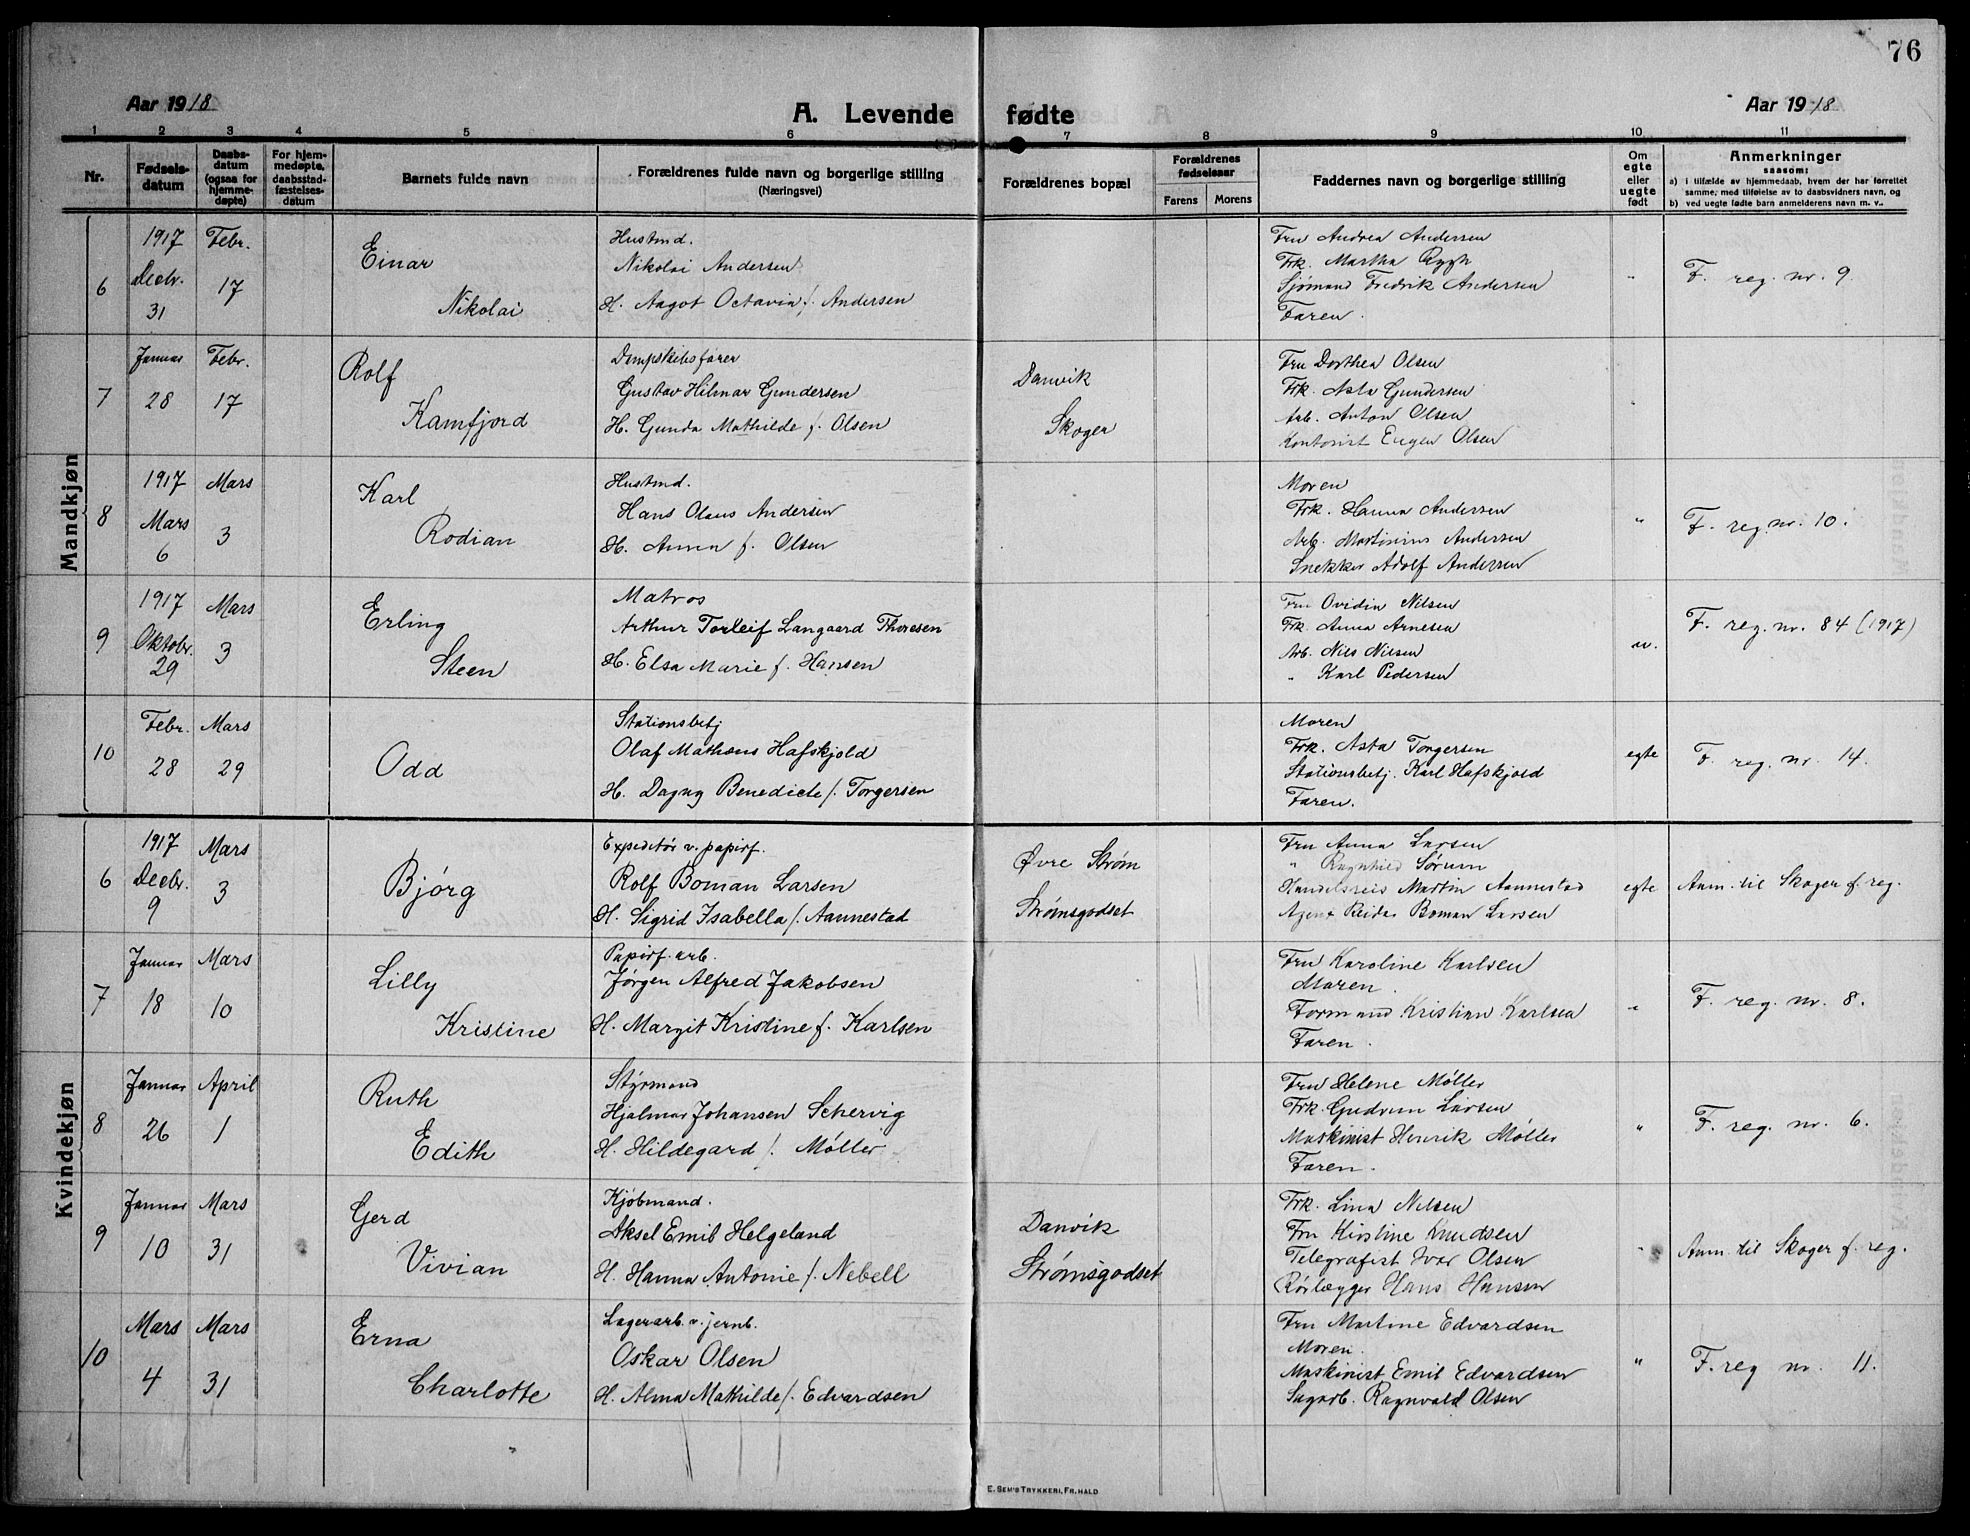 76
Aar 1918
A. Levende fødte
Aar 1918
1 2 3 4 5 6 7 8 9 10 11
Nr.
Fødselsdatum
Daabsdatum (ogsaa for hjemmedøpte)
For hjemmedøpte, daabsstadfæstelsesdatum
Barnets fulde navn
Forældrenes fulde navn og borgerlige stilling
(Næringsvei)
Forældrenes bopæl
Forældrenes fødselsaar
Farens
Morens
Faddernes navn og borgerlige stilling
Om egte eller uegte født
Anmerkninger
saasom:
a) i tilfælde av hjemmedaab, hvem der har forrettet samme, med tilføielse av to daabsvidners navn, og
b) ved uegte fødte barn anmelderens navn m. v..
Mandkjøn
6
1917 Decbr. 31
Febr. 17
Einar
Nikolai
Hustmd.
Nikolai Andersen
H. Aagot Octavia f. Andersen
Fru Andrea Andersen
Frk. Martha Rygh
Sjømand Fredrik Andersen
Faren.
"
F. reg. nr. 9.
7
Januar 28
Febr. 17
Rolf
Kamfjord
Dampskibsfører
Gustav Hilmar Gundersen
H. Gunda Mathilde f. Olsen
Danvik
Skoger
Fru Dorthea Olsen
Frk. Asta Gundersen
Arb. Anton Olsen
Kontorist Eugen Olsen
"
8
1917 Mars 6
Mars 3
Karl
Rodian
Hustmd.
Hans Olaus Andersen
H. Anna f. Olsen
Moren
Frk. Hanna Andersen
Arb. Martinius Andersen
Snekker Adolf Andersen
"
F. reg. nr. 10.
9
1917 Oktobr. 29
Mars 3
Erling
Steen
Matros
Arthur Torleif Langaard Thoresen
H. Elsa Marie f. Hansen
Fru Ovidia Nilsen
Frk. Anna Arnesen
Arb. Nils Nilsen
" Karl Pedersen
F. reg. nr. 84 (1917)
10
Febr. 28
Mars 29
Odd
Stationsbetj
Olaf Mathæus Hafskjold
H. Dagny Benedicte f. Torgersen
Moren
Frk. Asta Torgersen
Stationsbetj. Karl Hafskjold
Faren.
egte
F. reg. nr. 14.
Kvindekjøn
6
1917 Decbr. 9
Mars 3
Bjørg
Expeditør v. papirf.
Rolf Boman Larsen
H. Sigrid Isabella f. Aannestad
Øvre Strøm
Strømsgodset
Fru Anna Larsen
" Ragnhild Sørum
Handelsreis Martin Aannestad
Agent Reidar Boman Larsen
egte
Anm. til Skoger f. reg.
7
Januar 18
Mars 10
Lilly
Kristine
Papirf. arb.
Jørgen Alfred Jakobsen
H. Margit Kristine f. Karlsen
Fru Karoline Karlsen
Moren.
Formand Kristian Karlsen
Faren.
"
F. reg. nr. 8.
8
Januar 26
April 1
Ruth
Edith
Styrmand
Hjalmar Johansen Schervig
H. Hildegard f. Møller
Fru Helene Møller
Frk. Gudrun Larsen
Maskinist Henrik Møller
Faren.
"
F. reg. nr. 6.
9
Januar 10
Mars 31
Gerd
Vivian
Kjøbmand.
Aksel Emil Helgeland
H. Hanna Antonie f. Nebell
Danvik
Strømsgodset
Frk. Lina Nilsen
Fru Kirstine Knudsen
Telegrafist Ivar Olsen
Rørlægger Hans Hansen
"
Anm. til Skoger f. reg.
10
Mars 4
Mars 31
Erna
Charlotte
Lagerarb. v. jernb.
Oskar Olsen
H. Alma Mathilde f. Edvardsen
Fru Martine Edvardsen
Moren.
Maskinist Emil Edvardsen
Sagarb. Ragnvald Olsen
"
F. reg nr. 11.
E. SEM'S TRYKKERI, FR.HALD